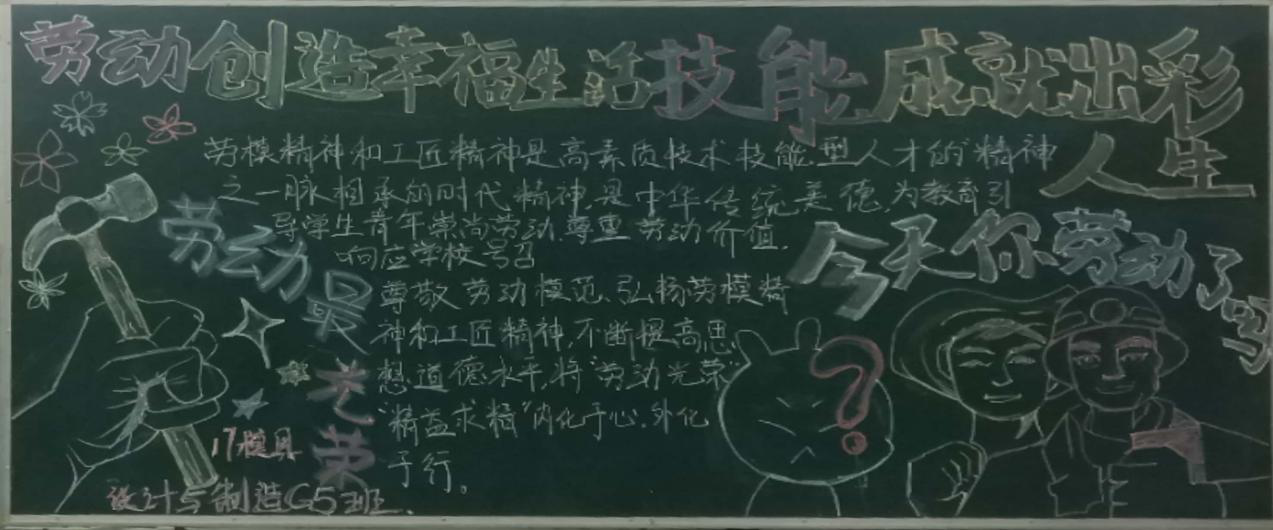 劳动创造幸福生活技能成就出彩
人生
劳模精神和工匠精神是高素质技术技能型人才的"精神
之一脉相承的时代精神是中华传统美德,为教育引
导学生青年崇尚劳动、尊重劳动价值,
响应学校号召
尊敬劳动模范、弘扬劳模精
神和工匠精神,不断提高思
想道德水平,将"劳动光荣"
"精益求精"内化于心、外化
于行。
劳动最
光荣
今天你劳动了吗
?
17模具
设计与制造G5班.